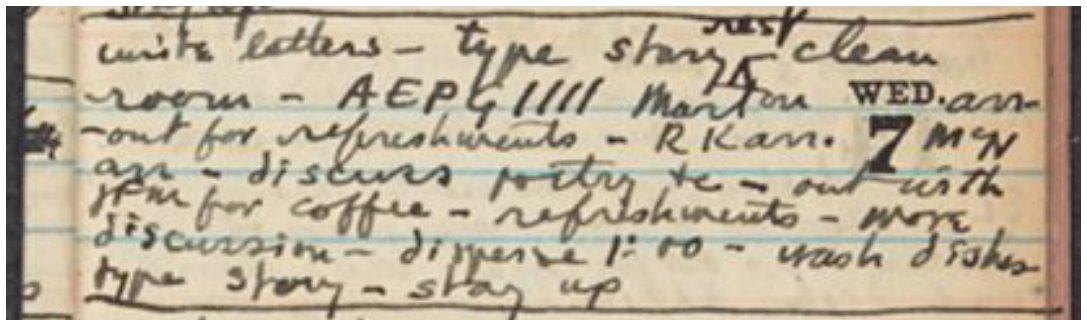 write letters - type story - rest clean
room - AEPG //// Marton WED. arr-
-out for refreshments - R K arr. 7 McN
arr - discuss poetry &c - out with
JFM for coffee - refreshments - more
discussion - disperse 1:00 - wash dishes
type story - stay up